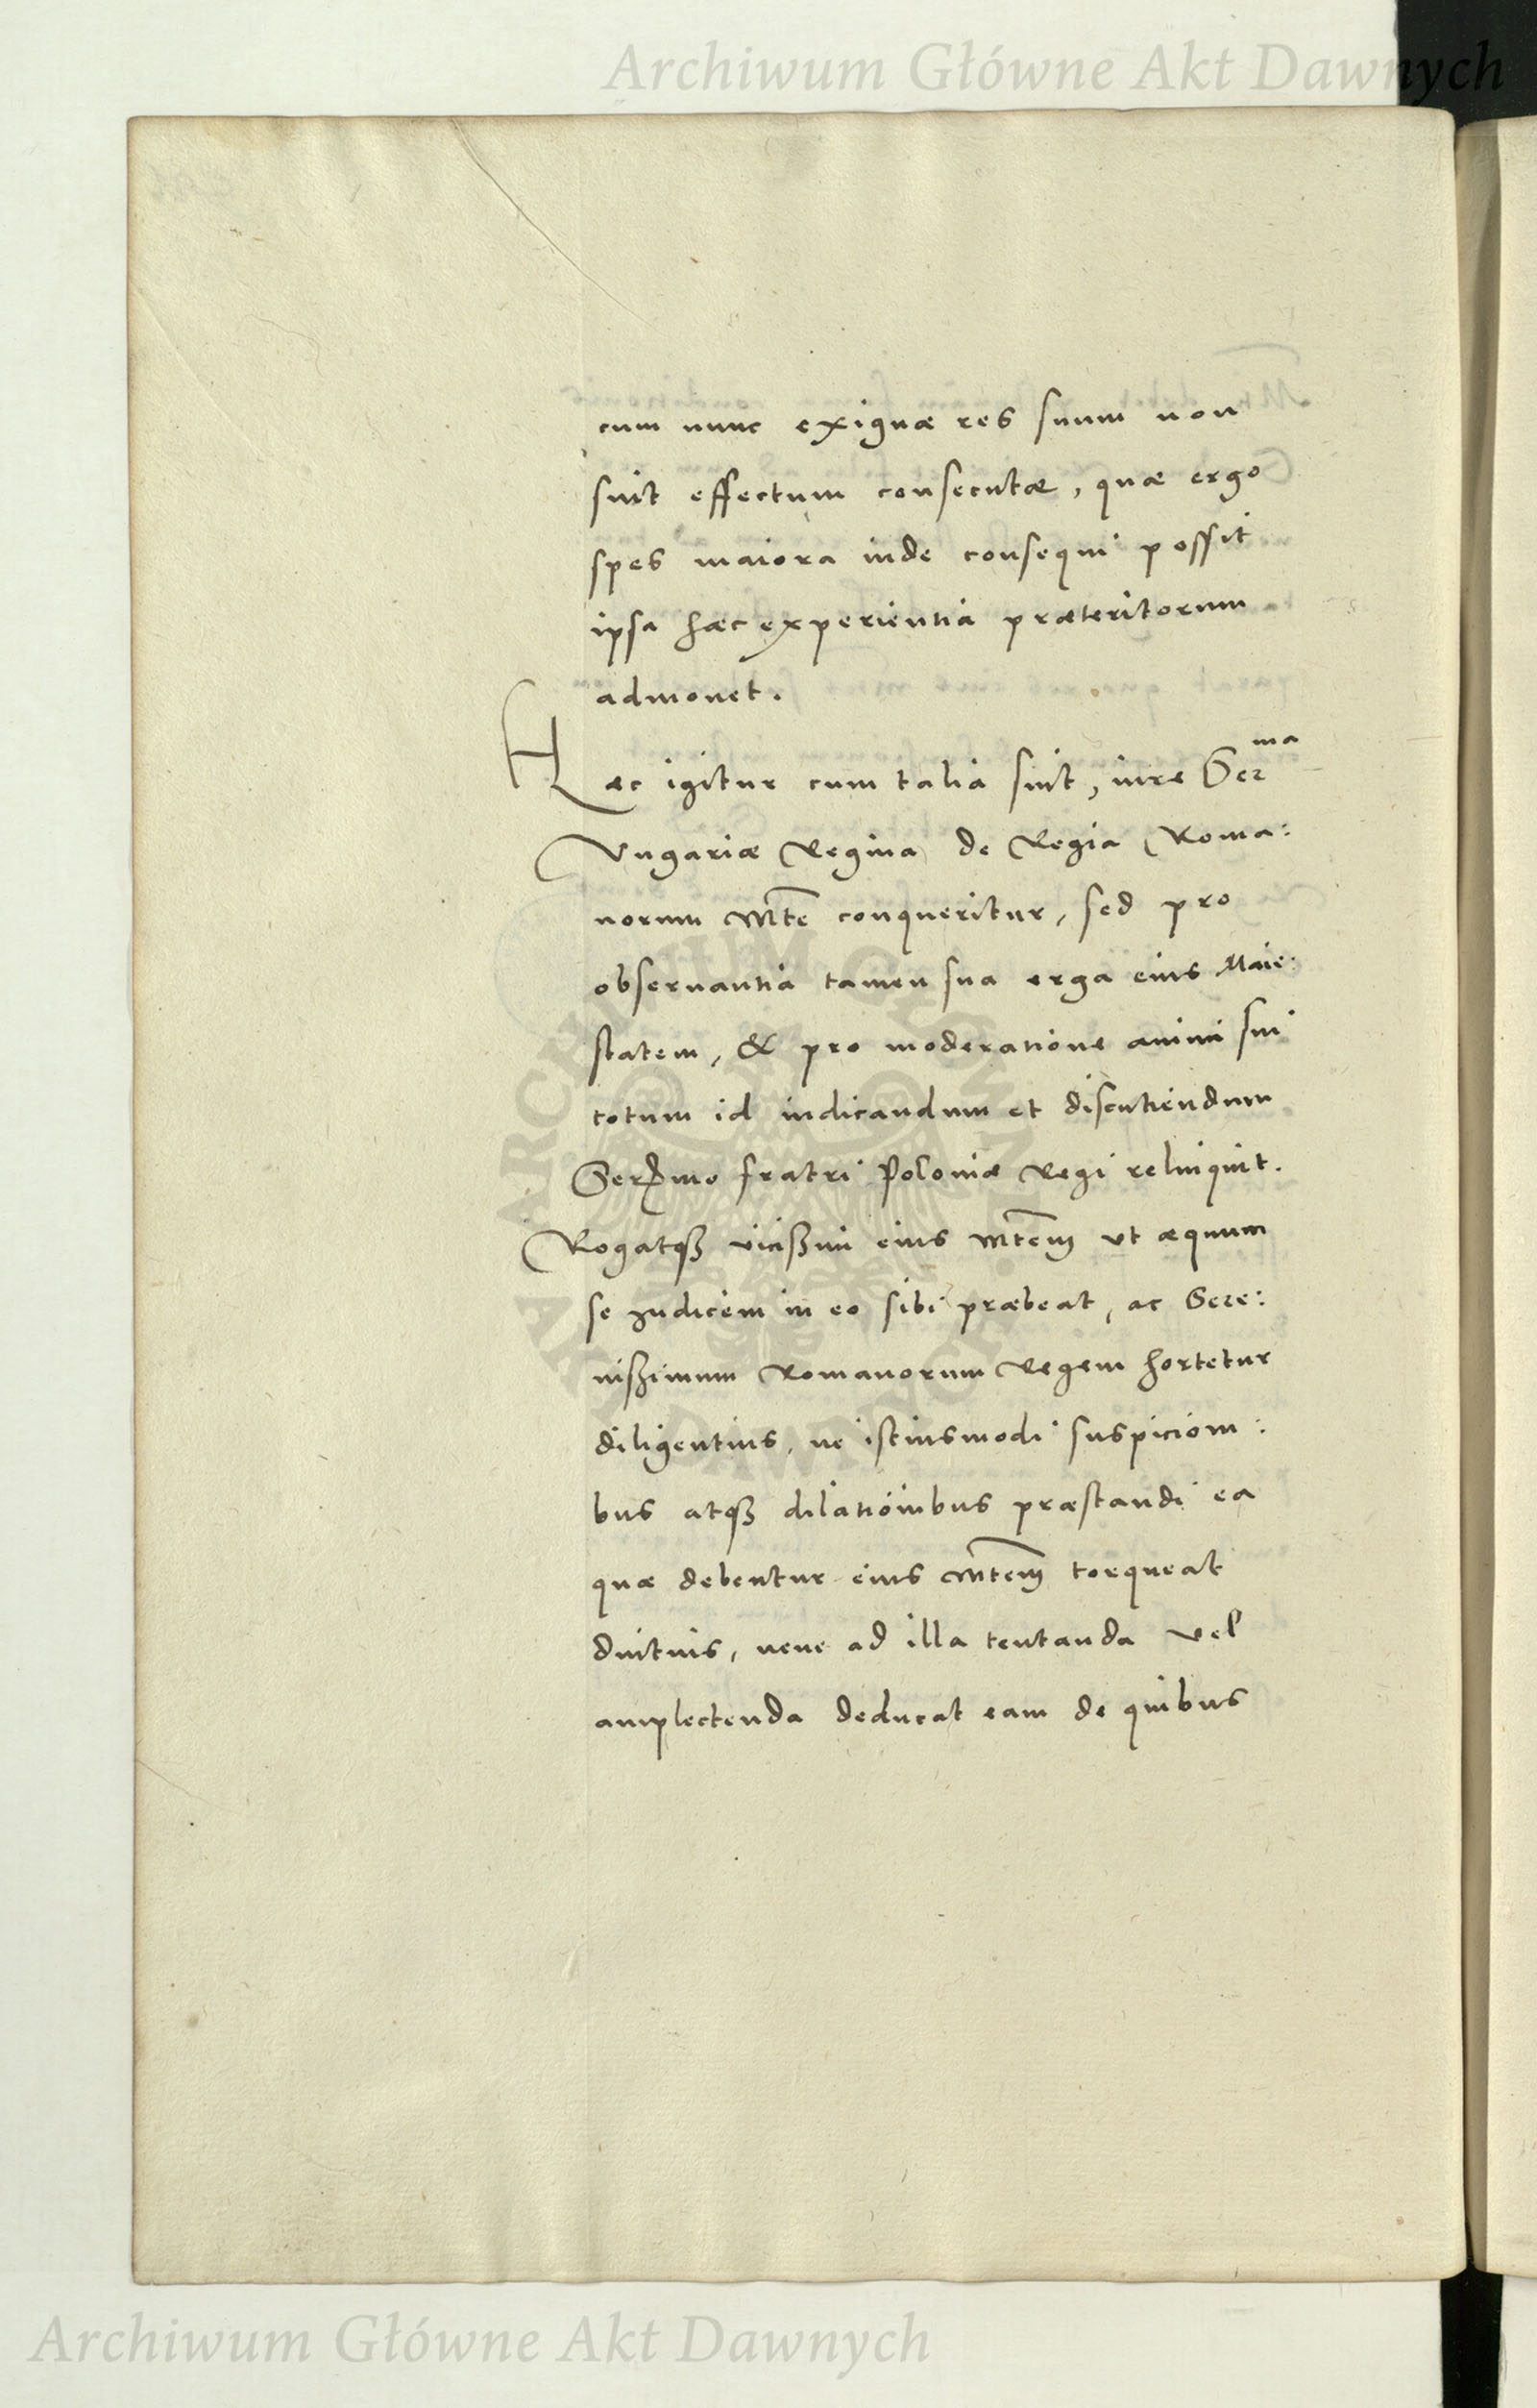 Archiwum Główne Akt Dawnych
cum nunc exiguæ res suum non
sint effectum consecutæ, quæ ergo
spes maiora inde consequi possit
ipsa hæc experientia præteritorum
admonet.
Hæc igitur cum talia sint, iure Ser^ma
Vngariæ Regina de Regia Roma:
norum Mte conqueritur, sed pro
obseruantia tamen sua erga eius Maie:
statem, & pro moderatione animi sui
totum id iudicandum et discutiendum
Sermo fratri Poloniæ Regi relinquit.
Rogatqȝ vicißim eius Mtem vt æquum
se iudicem in eo sibi præbeat, ac Sere:
nißimum Romanorum Regem hortetur
diligentius, ne istiusmodi suspicioni:
bus atqȝ dilationibus præstandi ea
quæ debentur eius Mtem torqueat
diutius, neue ad illa tentanda vel
amplectenda deducat eam de quibus
ARCHIWUM GŁÓWNE
AKT DAWNYCH
Archiwum Główne Akt Dawnych